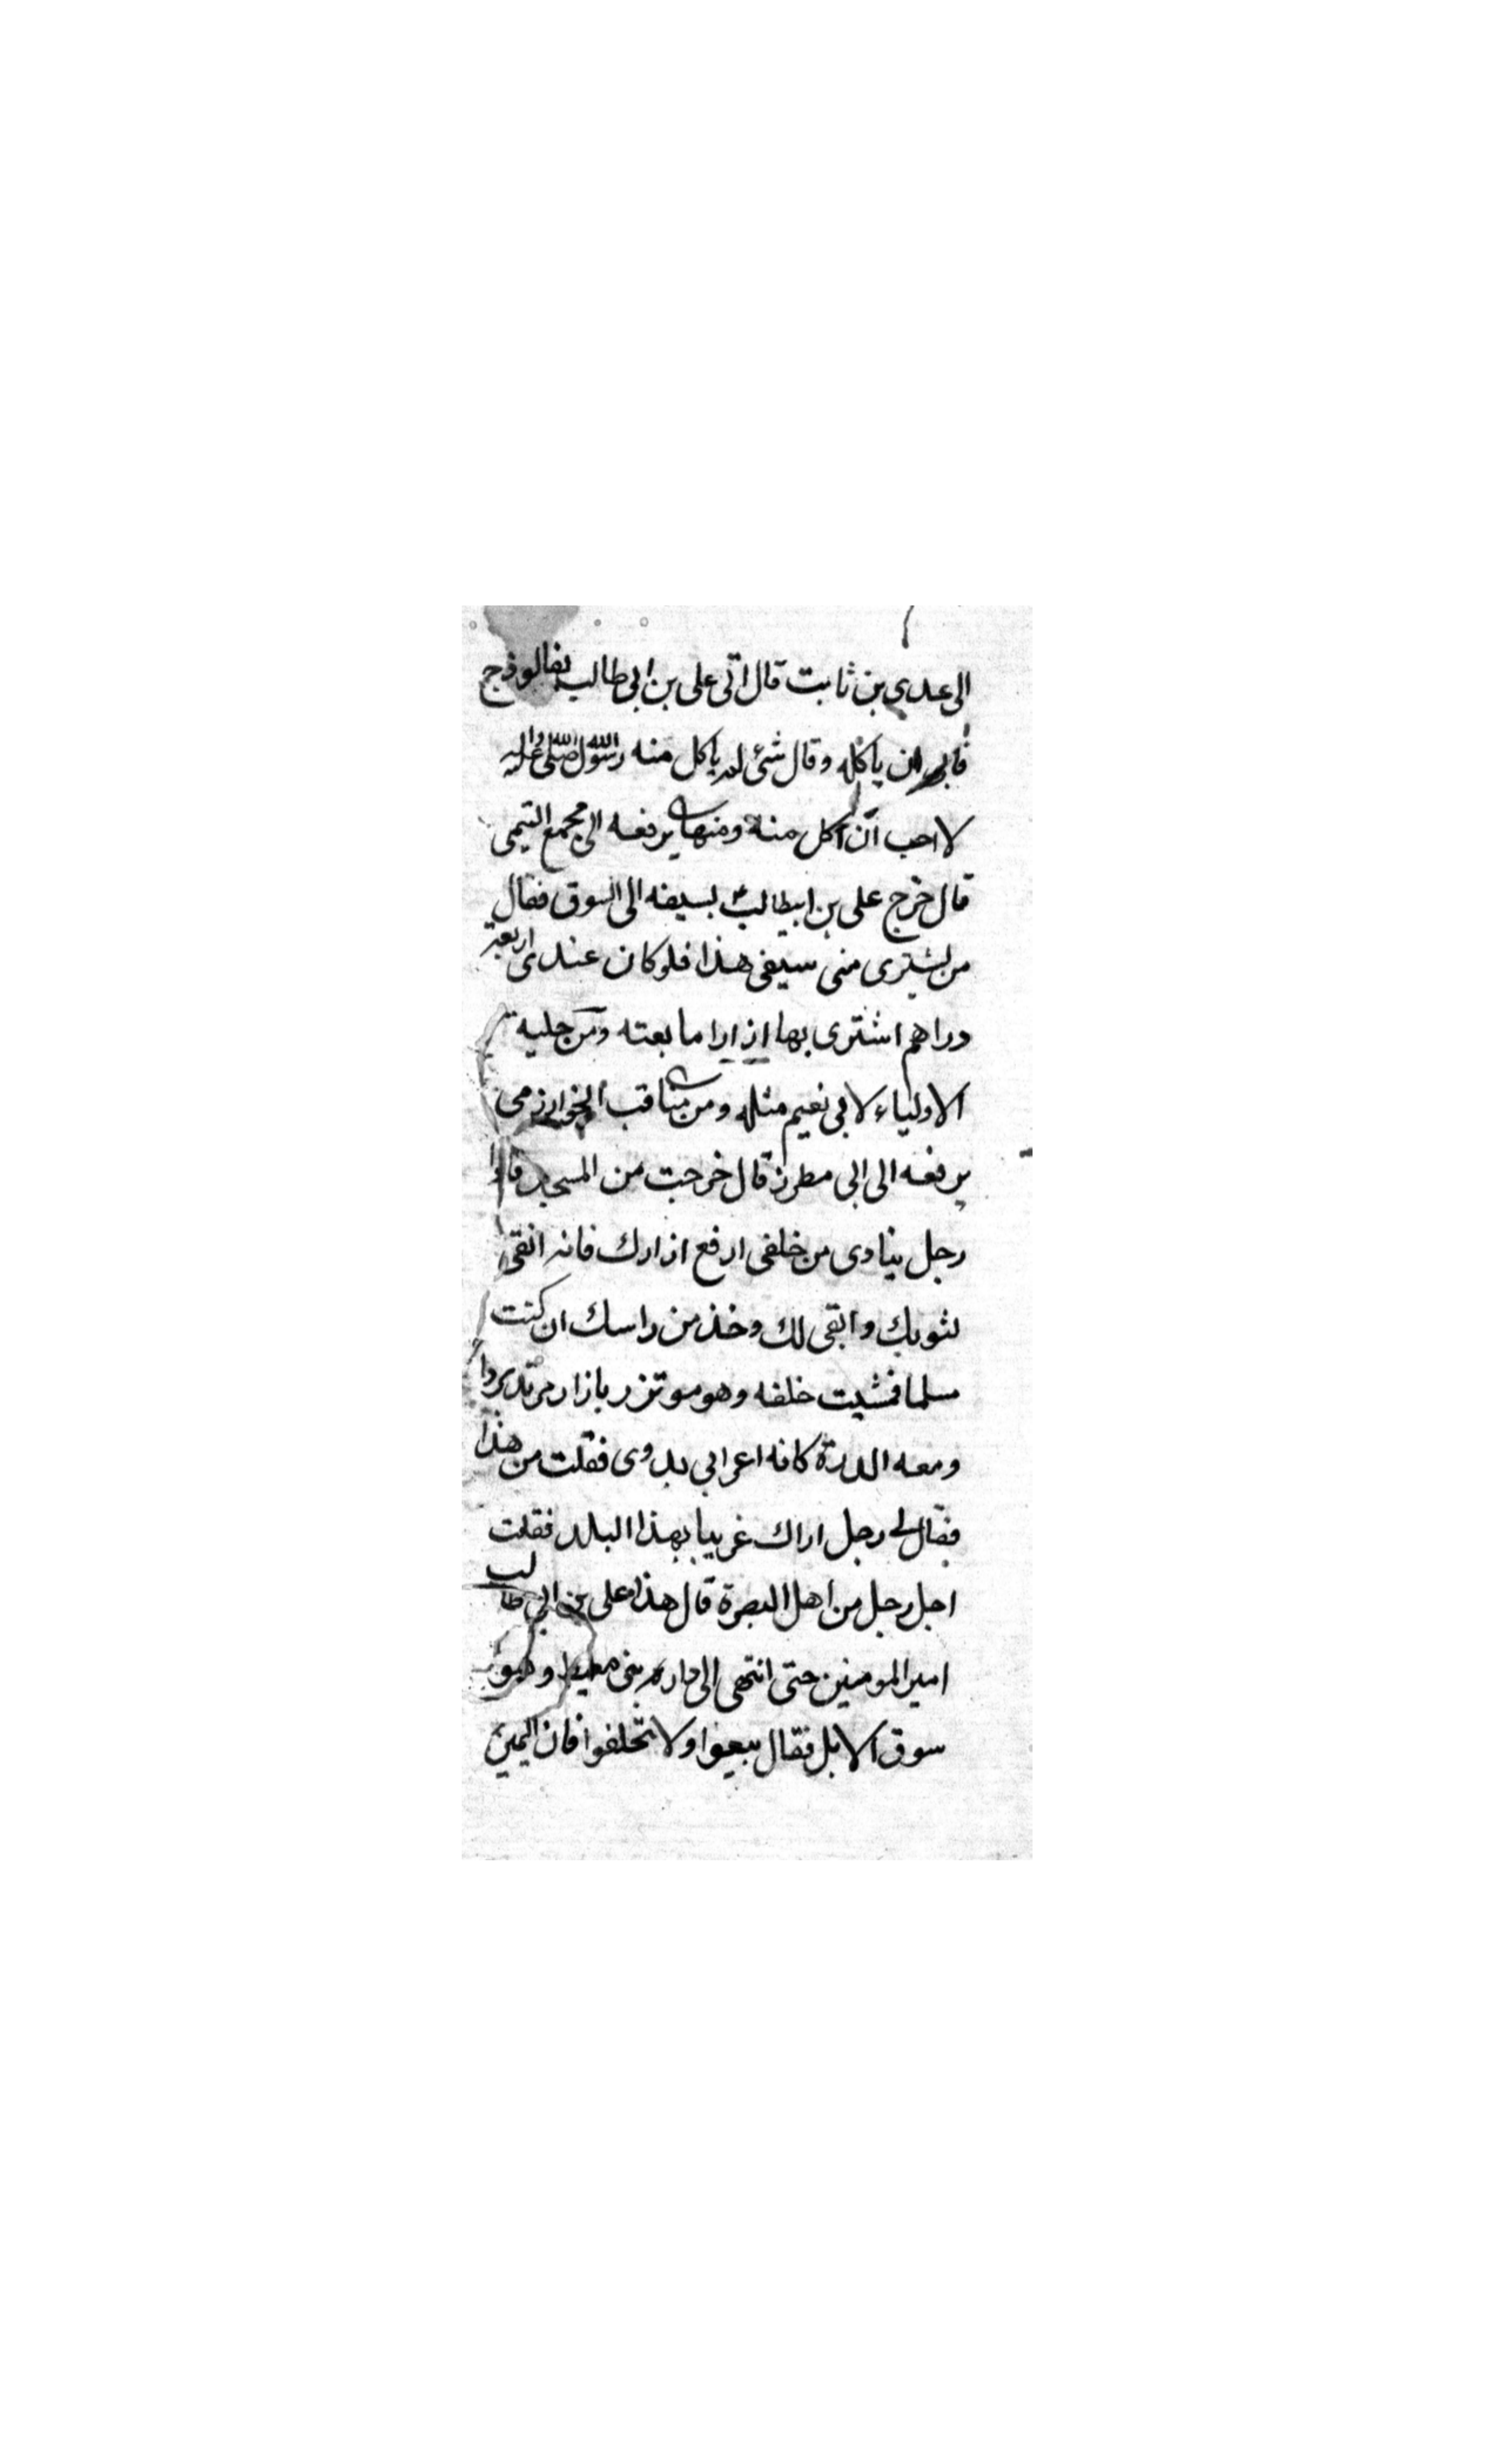 الى عدى بن ثابت قال اتى على بن ابى طالب بفالوذج
فابى ان ياكله وقال شئ لم ياكل منه رسول الله صلى الله عليه واله
لا احب ان آكل منه ومنها يرفعه الى مجمع التيمى
قال خرج على بن ابيطالب بسيفه الى السوق فقال
من يشترى منى سيفى هذا فلو كان عندى اربعة
دراهم اشترى بها ازارا ما بعته ومن حلية
الاولياء لابى نعيم مثله ومن مناقب الخوارزمى
يرفعه الى ابى مطرز قال خرجت من المسجد فاذا
رجل ينادى من خلفى ارفع ازارك فانه انقى
لثوبك وابقى لك وخذ من راسك ان كنت
مسلما فمشيت خلفه وهو موتزر بازار مرتد بردا
ومعه الدرة كانه اعرابى بدوى فقلت من هذا
فقال لى رجل اراك غريبا بهذا البلد فقلت
اجل رجل من اهل البصرة قال هذا على بن ابى طالب
امير المومنين حتى انتهى الى دار بنى معيط وهو
سوق الابل فقال بيعوا ولا تحلفوا فان اليمين